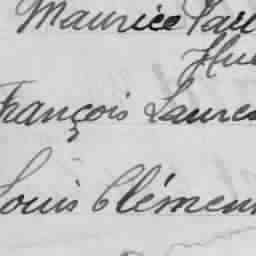 Maurice Pau
Hu
François Laure
Louis Clémen